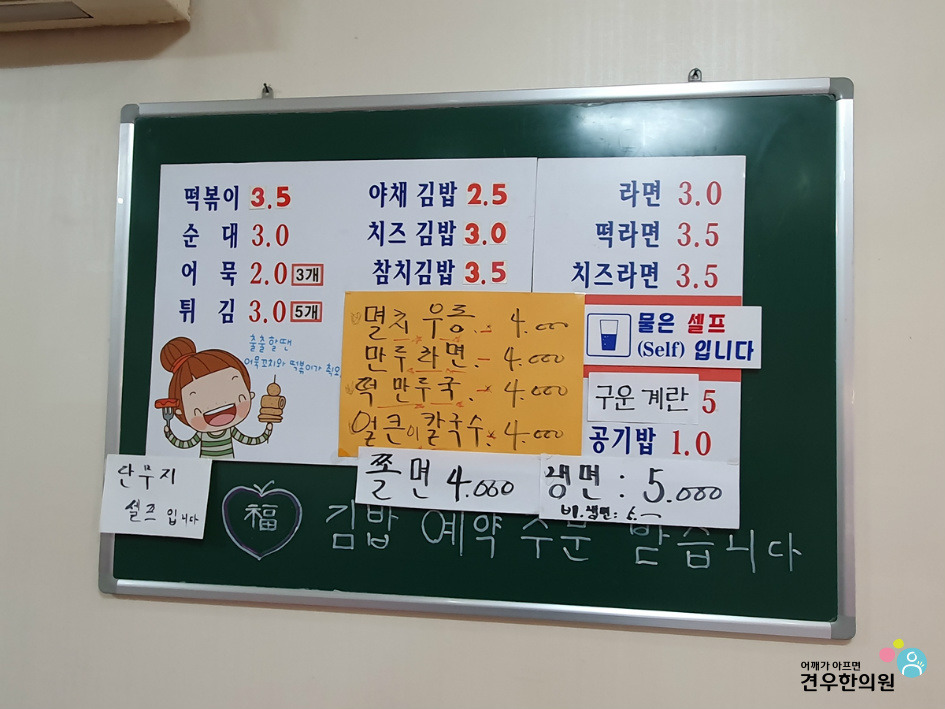 떡볶이 3.5
순 대 3.0
어 묵 2.0 3개
튀 김 3.0 5개
출출할땐
야채 김밥 2.5
치즈 김밥 3.0
참치김밥 3.5
라면 3.0
떡라면 3.5
치즈라면 3.5
멸치 우동 4.000
만두 라면 4.000
떡 만두국 4.000
얼큰이 칼국수 4.000
물은 셀프
(Self) 입니다
구운 계란 5
공기밥 1.0
쫄면 4.000
냉면 : 5.000
비.냉면: 5.
단무지
셀프 입니다
福 김밥 예약 주문 받습니다
어깨가 아프면
견우한의원